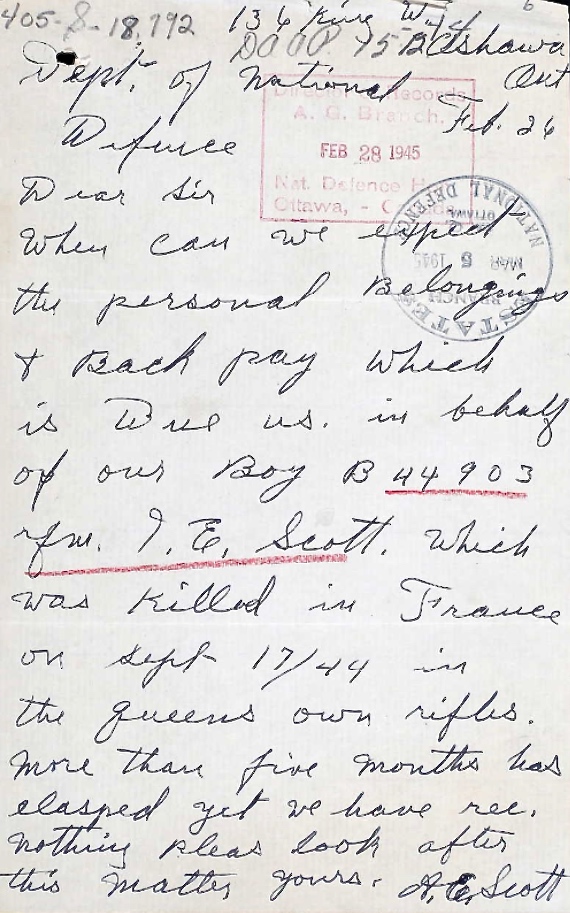 405-S-18,792
136 King W.
DOOP 1512 Oshawa
Dept. of National Ont
Defence Feb. 26
Director of Records
A. G. Branch.
FEB 28 1945
Nat. Defence
Ottawa, - Canada
Dear Sir
ESTATES BRANCH
MAR 5 1945
OTTAWA
NATIONAL DEFENCE
When can we expect
the personal Belongings
& Back pay which
is Due us. in behalf
of our Boy B 44903
rfm. I. E. Scott. Which
was Killed in France
on Sept 17/44 in
the queens own rifles.
More than five months has
elasped yet we have rec.
nothing pleas look after
this matter yours. A.E. Scott